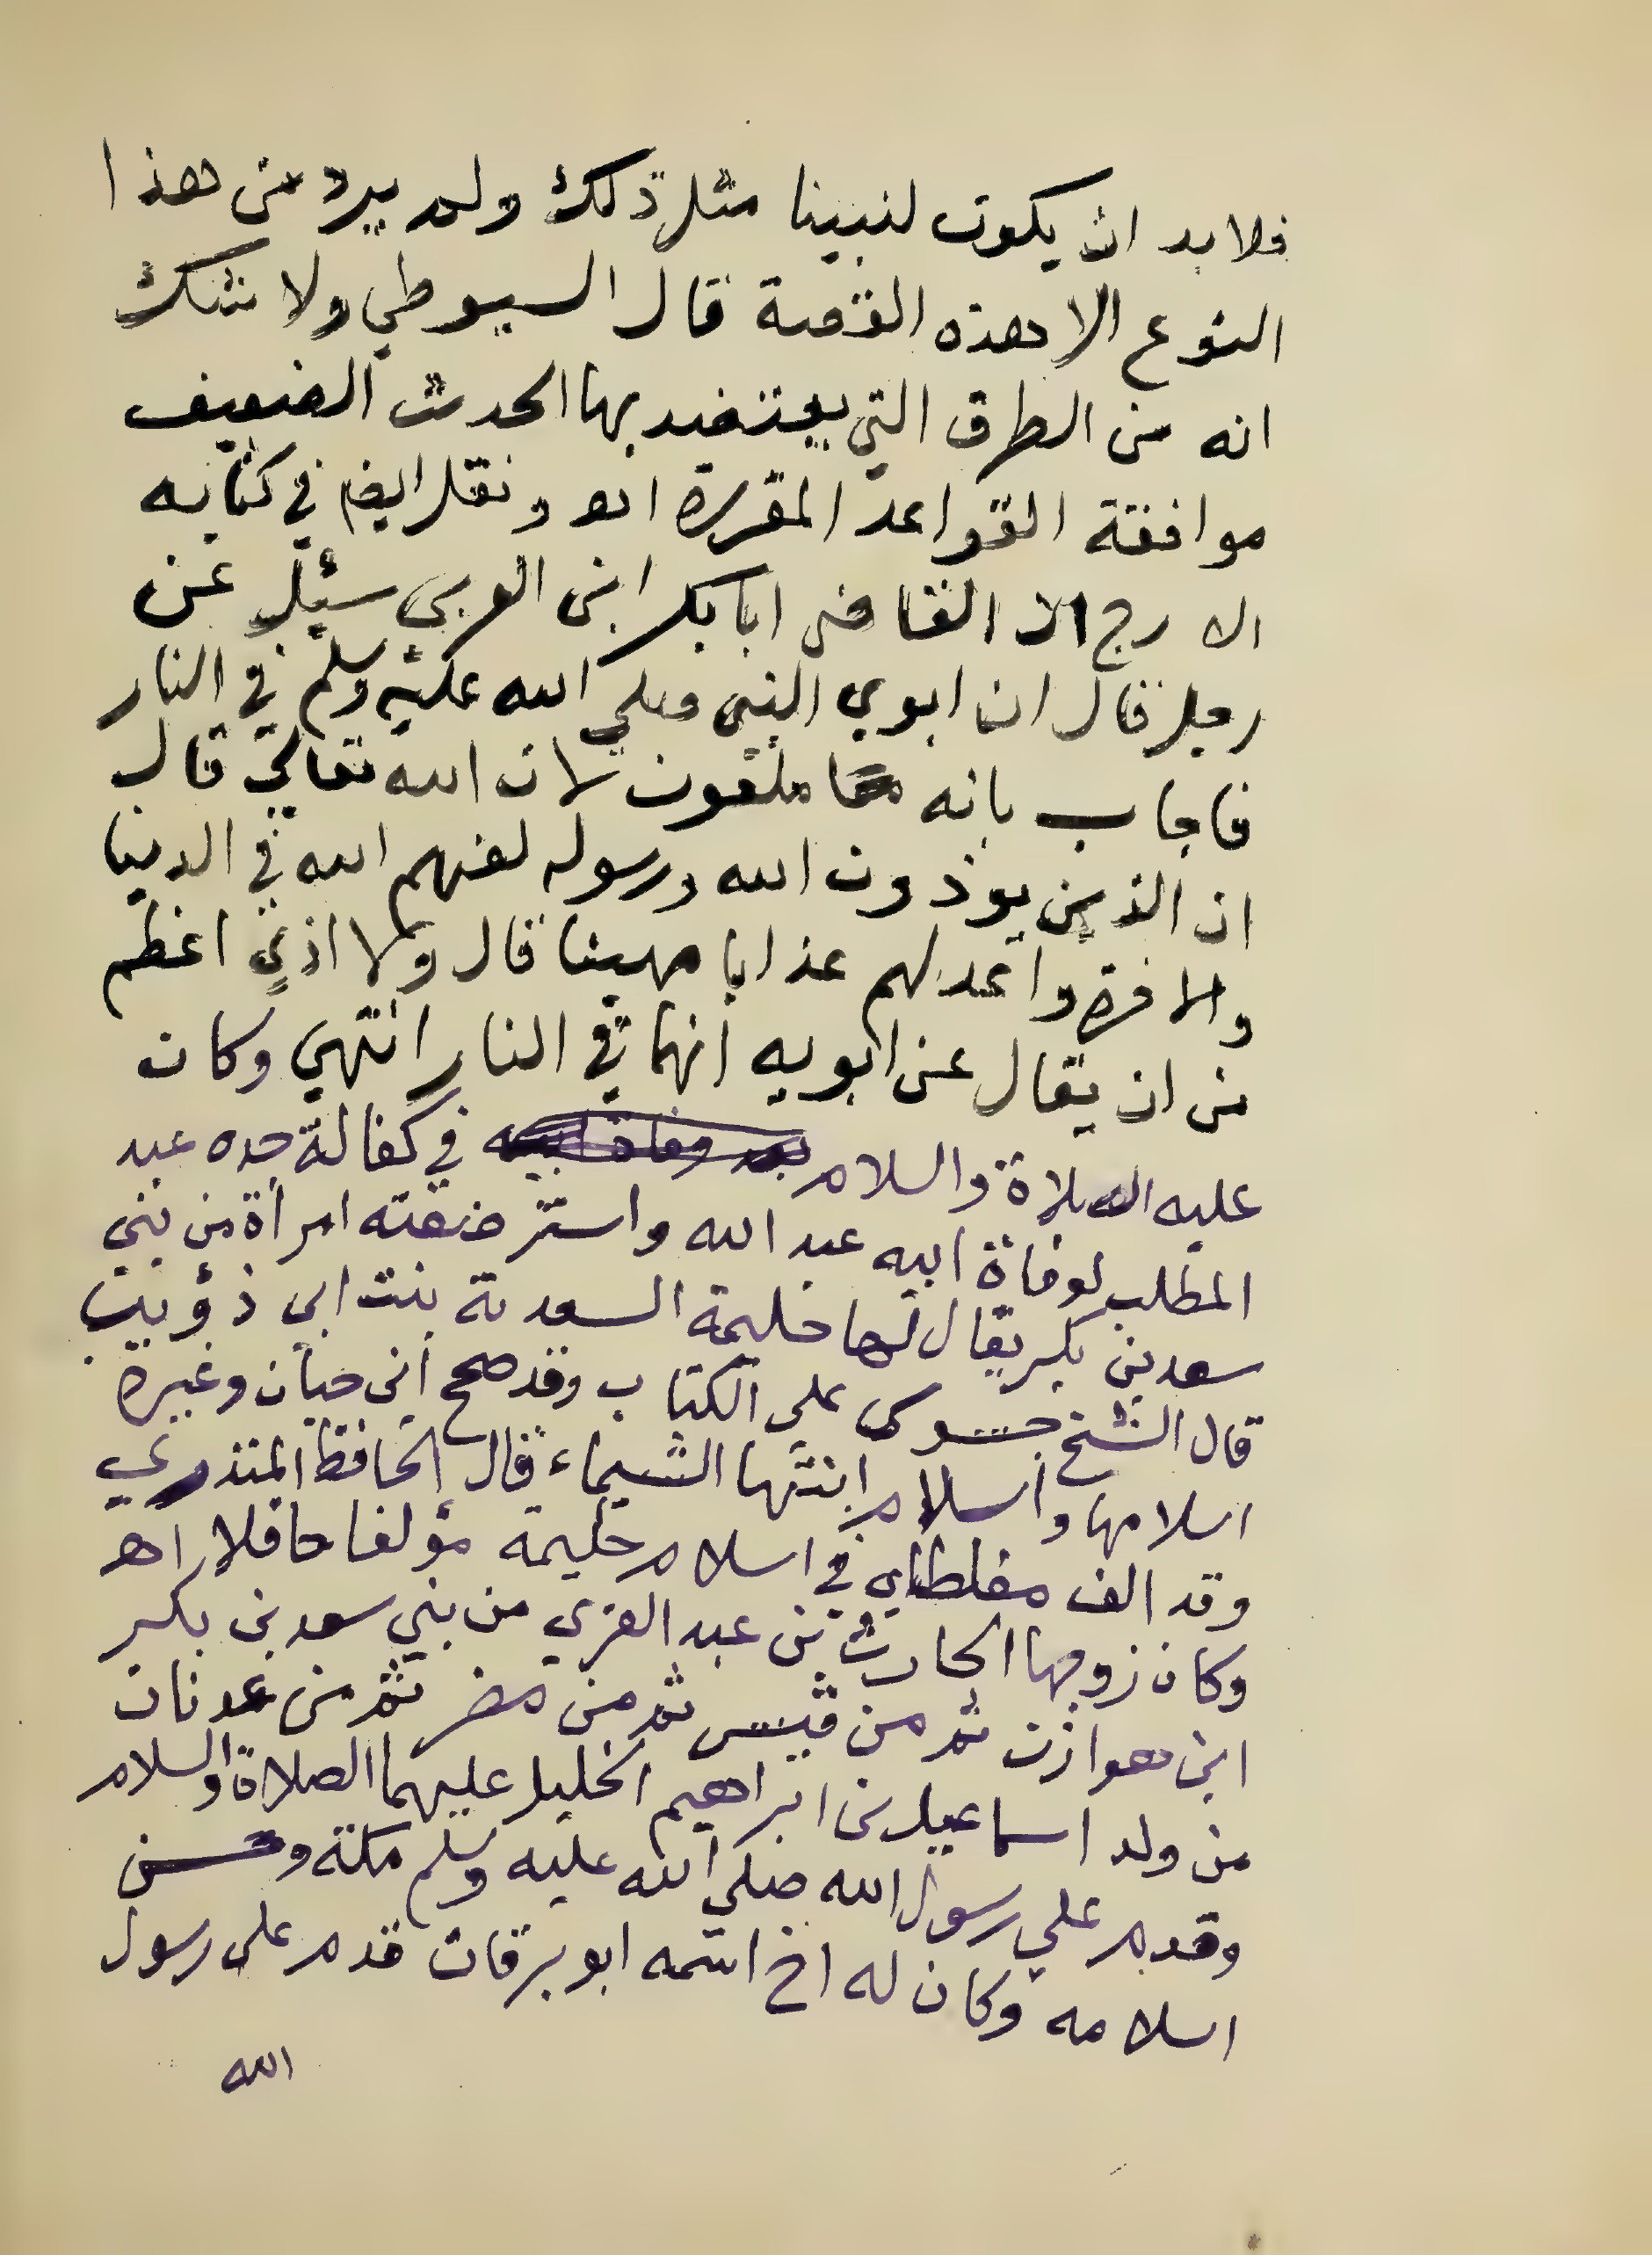 فلا بد ان يكون لنبينا مثل ذلك ولم يرد من هذا
النوع الا هذه القصة قال السيوطي ولا شك
انه من الطرق التي يعتضد بها الحديث الضعيف
موافقة القواعد المقررة اهـ ونقل ايضا في كتابه
رج ان القاضى ابا بكر ابن العربي سئل عن
رجل قال ان ابوي النبي صلى الله عليه وسلم في النار
فاجاب بانه ملعون لان الله تعالى قال
ان الذين يوذون الله ورسوله لعنهم الله في الدنيا
والاخرة واعد لهم عذابا مهينا قال ولا اذي اعظم
من ان يقال عن ابويه انهما في النار انتهي وكان
عليه الصلاة والسلام بعد وفاة ابيه في كفالة جده عبد
المطلب لوفاة ابيه عبد الله واسترضعته امراة من بني
سعد بن بكر يقال لها حليمة السعدية بنت ابي ذؤيب
قال الشيخ جسوس على الكتاب وقد صحح ابن حبان وغيره
اسلامها واسلام ابنتها الشيماء قال الحافظ المنذري
وقد الف مغلطاي في اسلام حليمة مؤلفا حافلا اهـ
وكان زوجها الحارث بن عبد العزي من بني سعد بن بكر
ابن هوازن ثم من قيس ثم من مضر ثم من عدنان
من ولد اسماعيل بن ابراهيم الخليل عليهما الصلاة والسلام
وقدم علي رسول الله صلى الله عليه وسلم مكة وحسن
اسلامه وكان له اخ اسمه ابو برقان قدم على رسول
الله